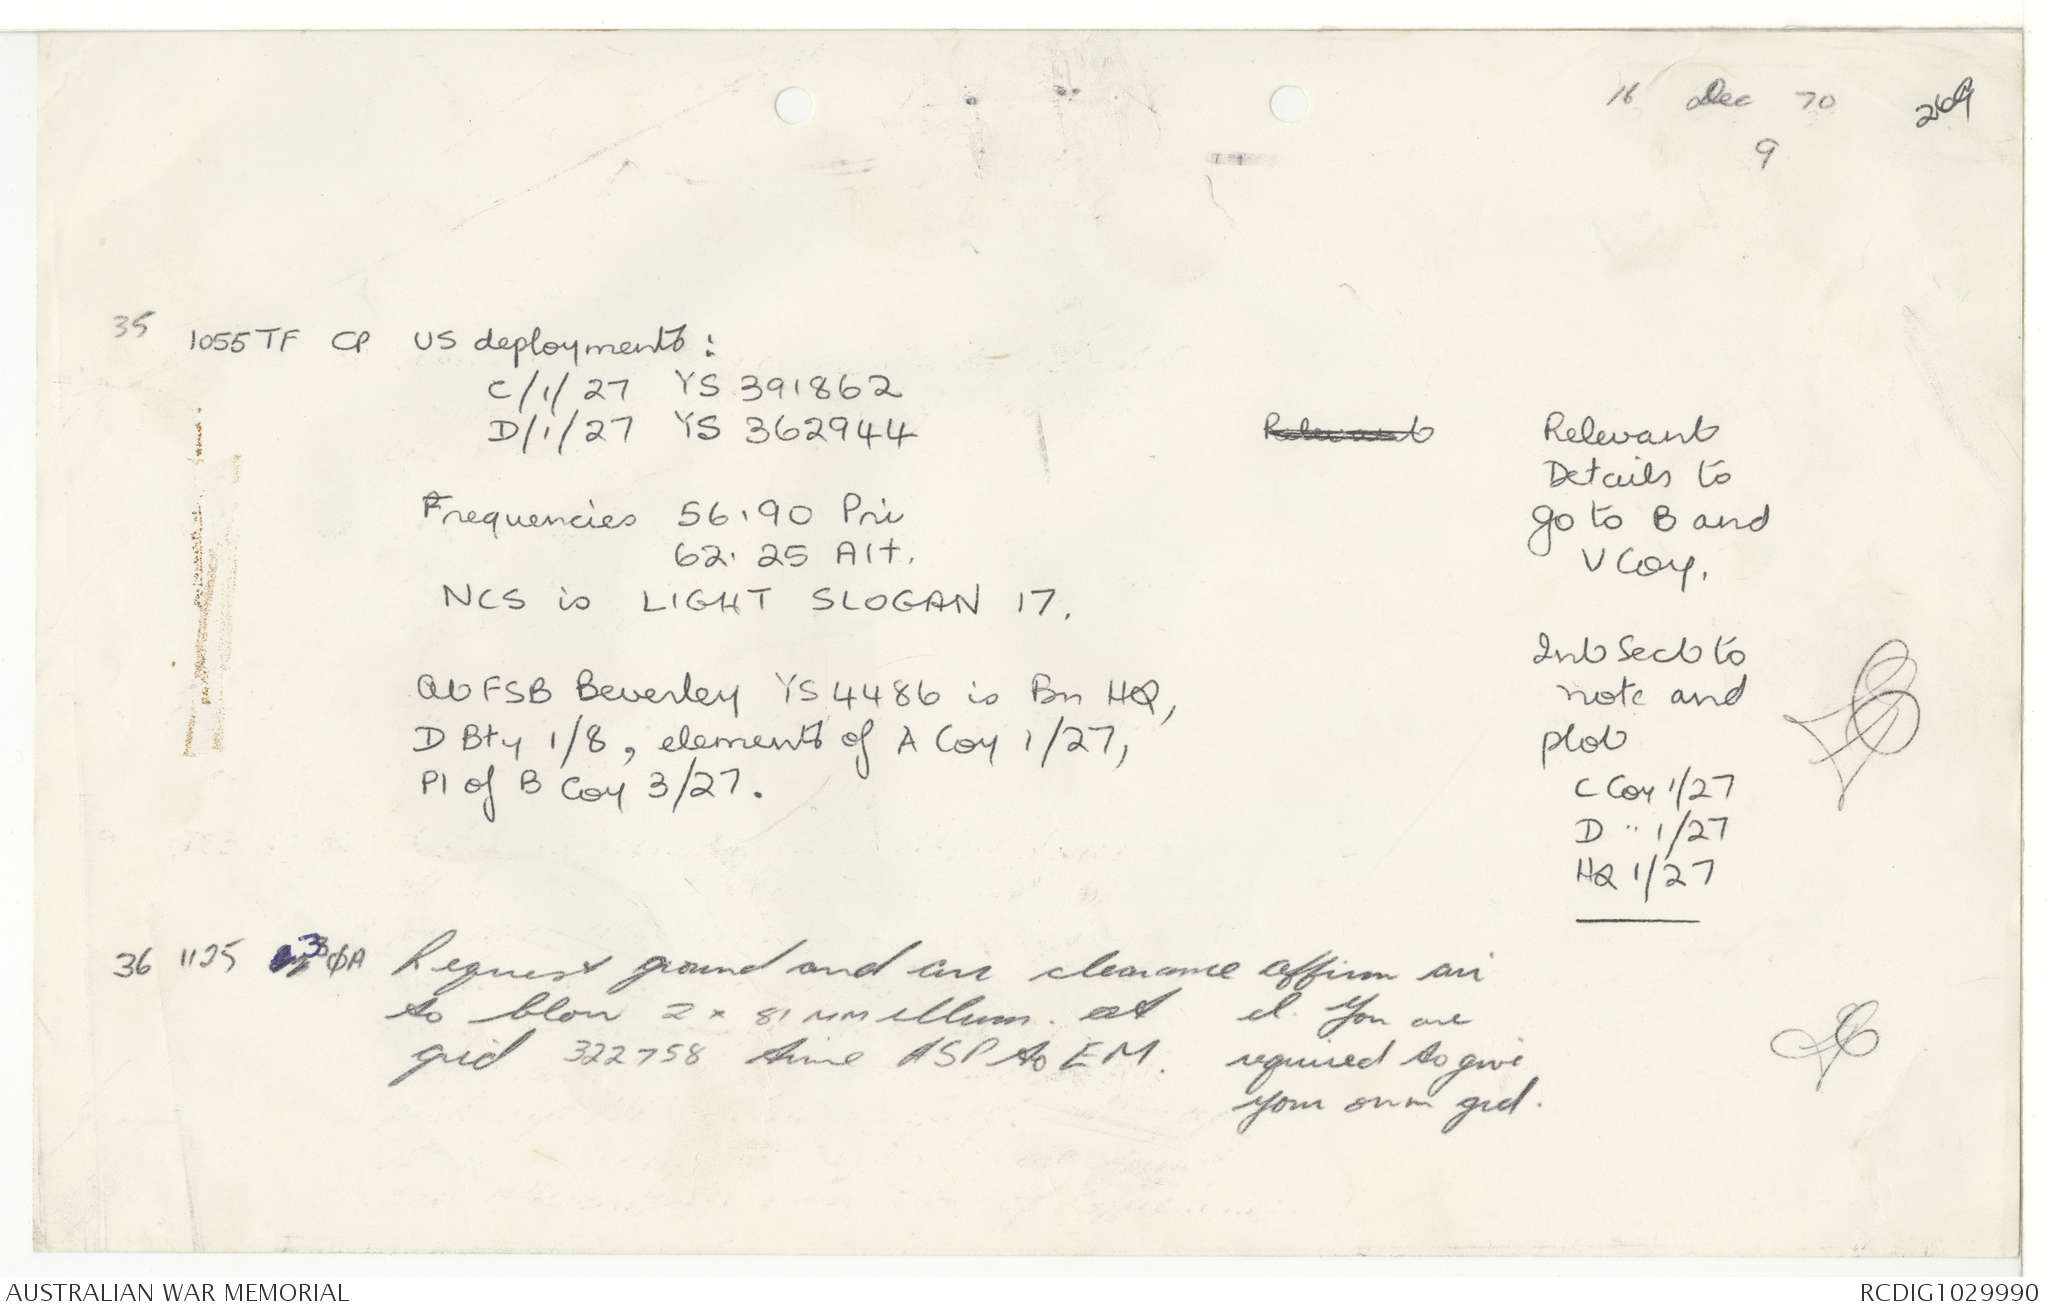 16 Dec 70
269
9
35 1055 TF CP US deployments:
C/1/27 YS 391862
D/1/27 YS 362944
Relevant
Relevant
Details to
go to B and
V Coy.
Frequencies 56.90 Pri
62.25 Alt.
NCS is LIGHT SLOGAN 17.
Int Sect to
note and
plot
C Coy 1/27
D " 1/27
HQ 1/27
At FSB Beverley YS 4486 is Bn HQ,
D Bty 1/8, elements of A Coy 1/27,
Pl of B Coy 3/27.
36 1125 ØA Request ground and air clearance
to blow 2 x 81 MM illum. at
grid 322758 time ASP to EM.
affirm air
cl. You are
required to give
your own grid.
AUSTRALIAN WAR MEMORIAL
RCDIG1029990